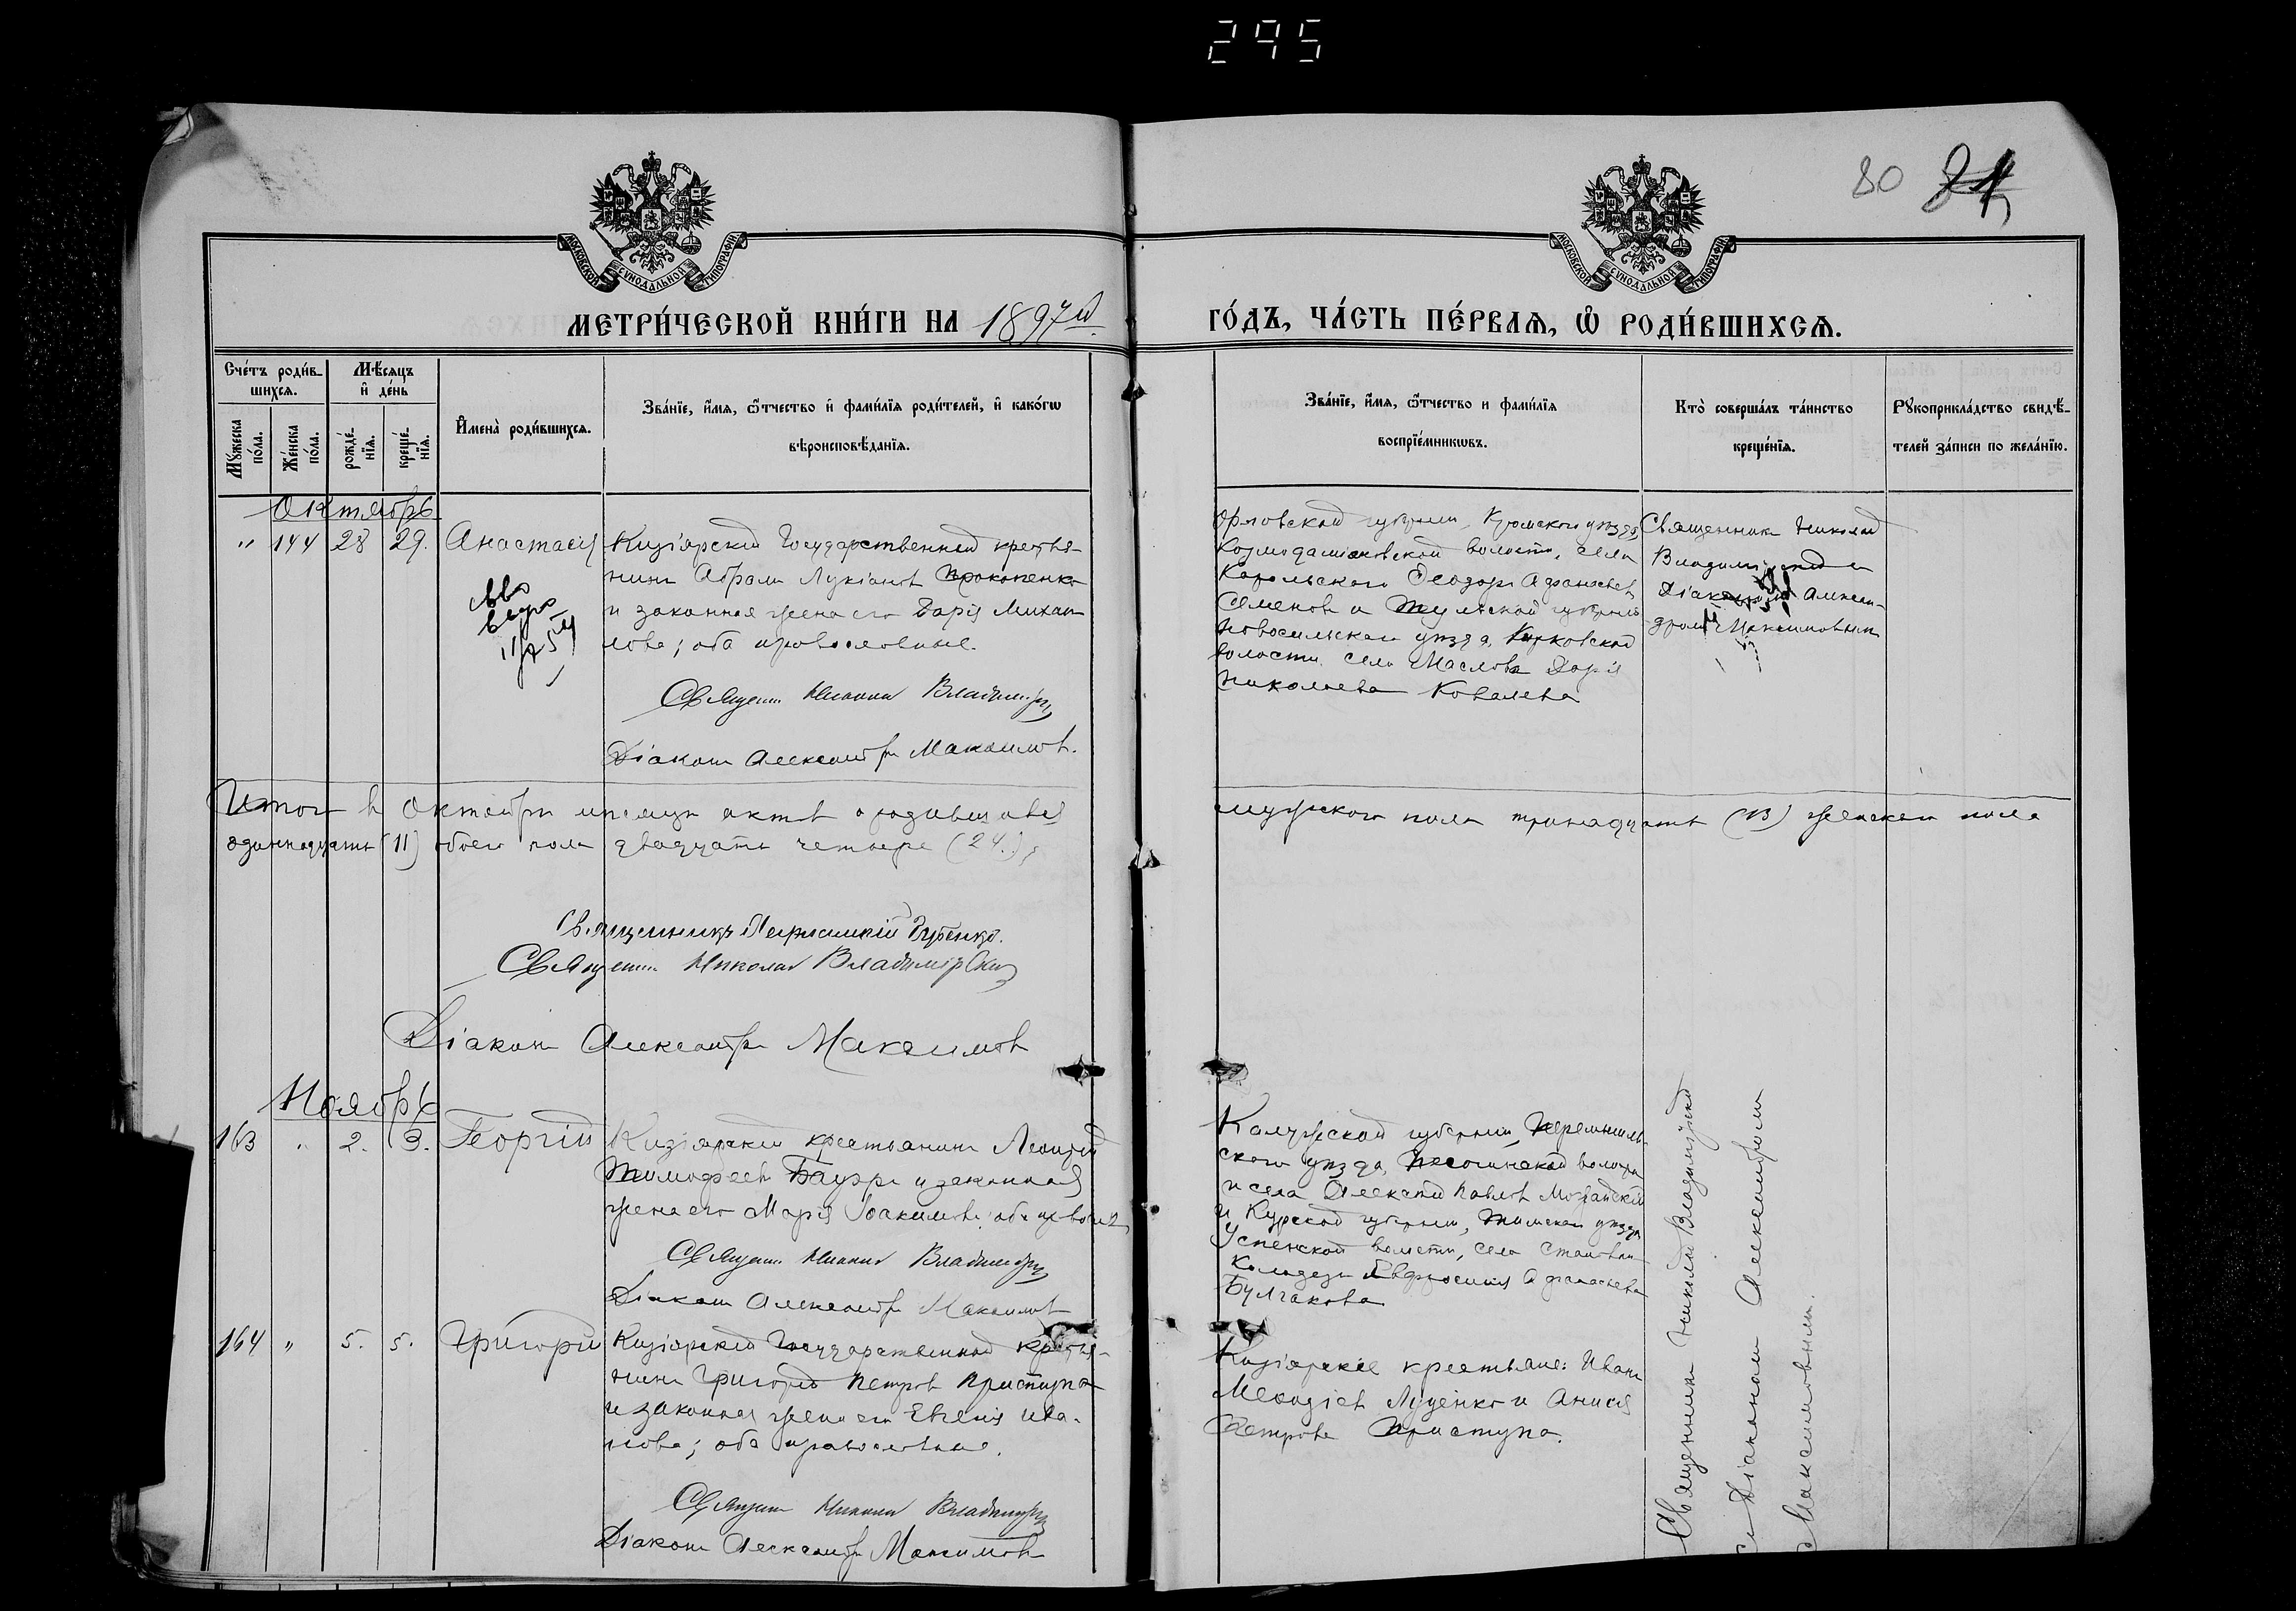 295
80 81
МОСКОВСКОЙ СѴНОДАЛЬНОЙ ТИПОГРАФІИ
МОСКОВСКОЙ СѴНОДАЛЬНОЙ ТИПОГРАФІИ
МЕТРИ́ЧЕСКОЙ КНИ́ГИ НА 1897й ГО́ДЪ, ЧА́СТЬ ПЕ́РВАЯ, Ѡ РОДИ́ВШИХСЯ.
Сче́тъ роди́в-
шихся.
Мꙋ́жеска по́ла.
Же́нска по́ла.
Мѣ́сяцъ
и҆ де́нь
рожде́-
нїя.
креще́-
нїя.
И҆мена̀ роди́вшихся.
Зва́нїе, и҆́мя, ѻ҆́тчество и҆ фами́лїя роди́телей, и҆ како́гѡ
вѣроисповѣ́данїя.
Зва́нїе, и҆́мя, ѻ҆́тчество и фами́лїя
воспрїе́мникѡвъ.
Кто̀ соверша́лъ та́инство
креще́нїя.
Рꙋкоприкла́дство свидѣ́-
телей за́писи по жела́нїю.
Октябрь
" 144 28 29. Анастасія
Кизіярскій Государственный крестья-
нинъ Абрамъ Лукіановъ Прокопенко
и законная жена его Дарія Михаи-
лова; оба православные.
Священ. Николай Владимірскій
Діаконъ Александръ Максимовъ.
Орловской губерніи, Кромскаго уѣзда,
Космодаміановской волости, села
Корольскаго Ѳеодоръ Афанасьевъ
Семеновъ и Тульской губерніи
Новосильскаго уѣзда, волости, села Маслова Дарія
Николаева Ковалева
Священникъ Николай
Владимірскій и
Діаконъ Алексан-
дромъ Максимовымъ
Итого въ Октябрѣ мѣсяцѣ актовъ о родившихся мужского пола тринадцать (13) женскаго пола
одиннадцать (11) обоего пола двадцать четыре (24).
Священникъ
Священ. Николай Владимірскій
Діаконъ Александръ Максимовъ
Ноябрь
163 " 2. 3. Георгій
Кизіярскій крестьянинъ Леонтій
Тимофеевъ Бауэръ и законная
жена его Марія Іоакимова; оба правосл.
Священ. Николай Владимірскій
Діаконъ Александръ Максимовъ
Калужской губерніи, Перемышль-
скаго уѣзда, волости
и села Алексѣй Павловъ Можайскій
и Курской губерніи, Тимскаго уѣзда
Успенской волости, села
Колодезя Евфросинія Афанасьева
Булгакова
164 " 5. 5. Григорій
Кизіярскій Государственный крестья-
нинъ Григорій Петровъ Приступа
и законная жена его Евгенія Ива-
нова; оба православные.
Священ. Николай Владимірскій
Діаконъ Александръ Максимовъ
Кизіярскіе крестьяне: Иванъ
Меѳодіевъ Луценко и Анисія
Петрова Приступа.
Священникъ Николай Владимірскій
и Діакономъ Александромъ
Максимовымъ.